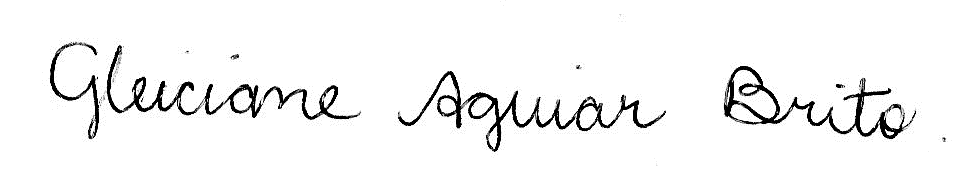 Gleiciane Aguiar Brito.